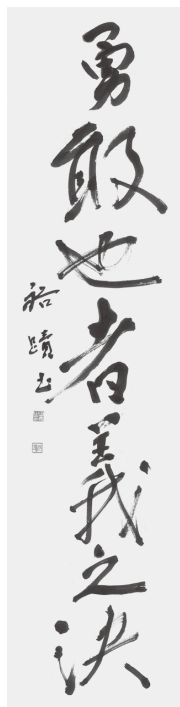 勇敢也者義之決
裕蹟書